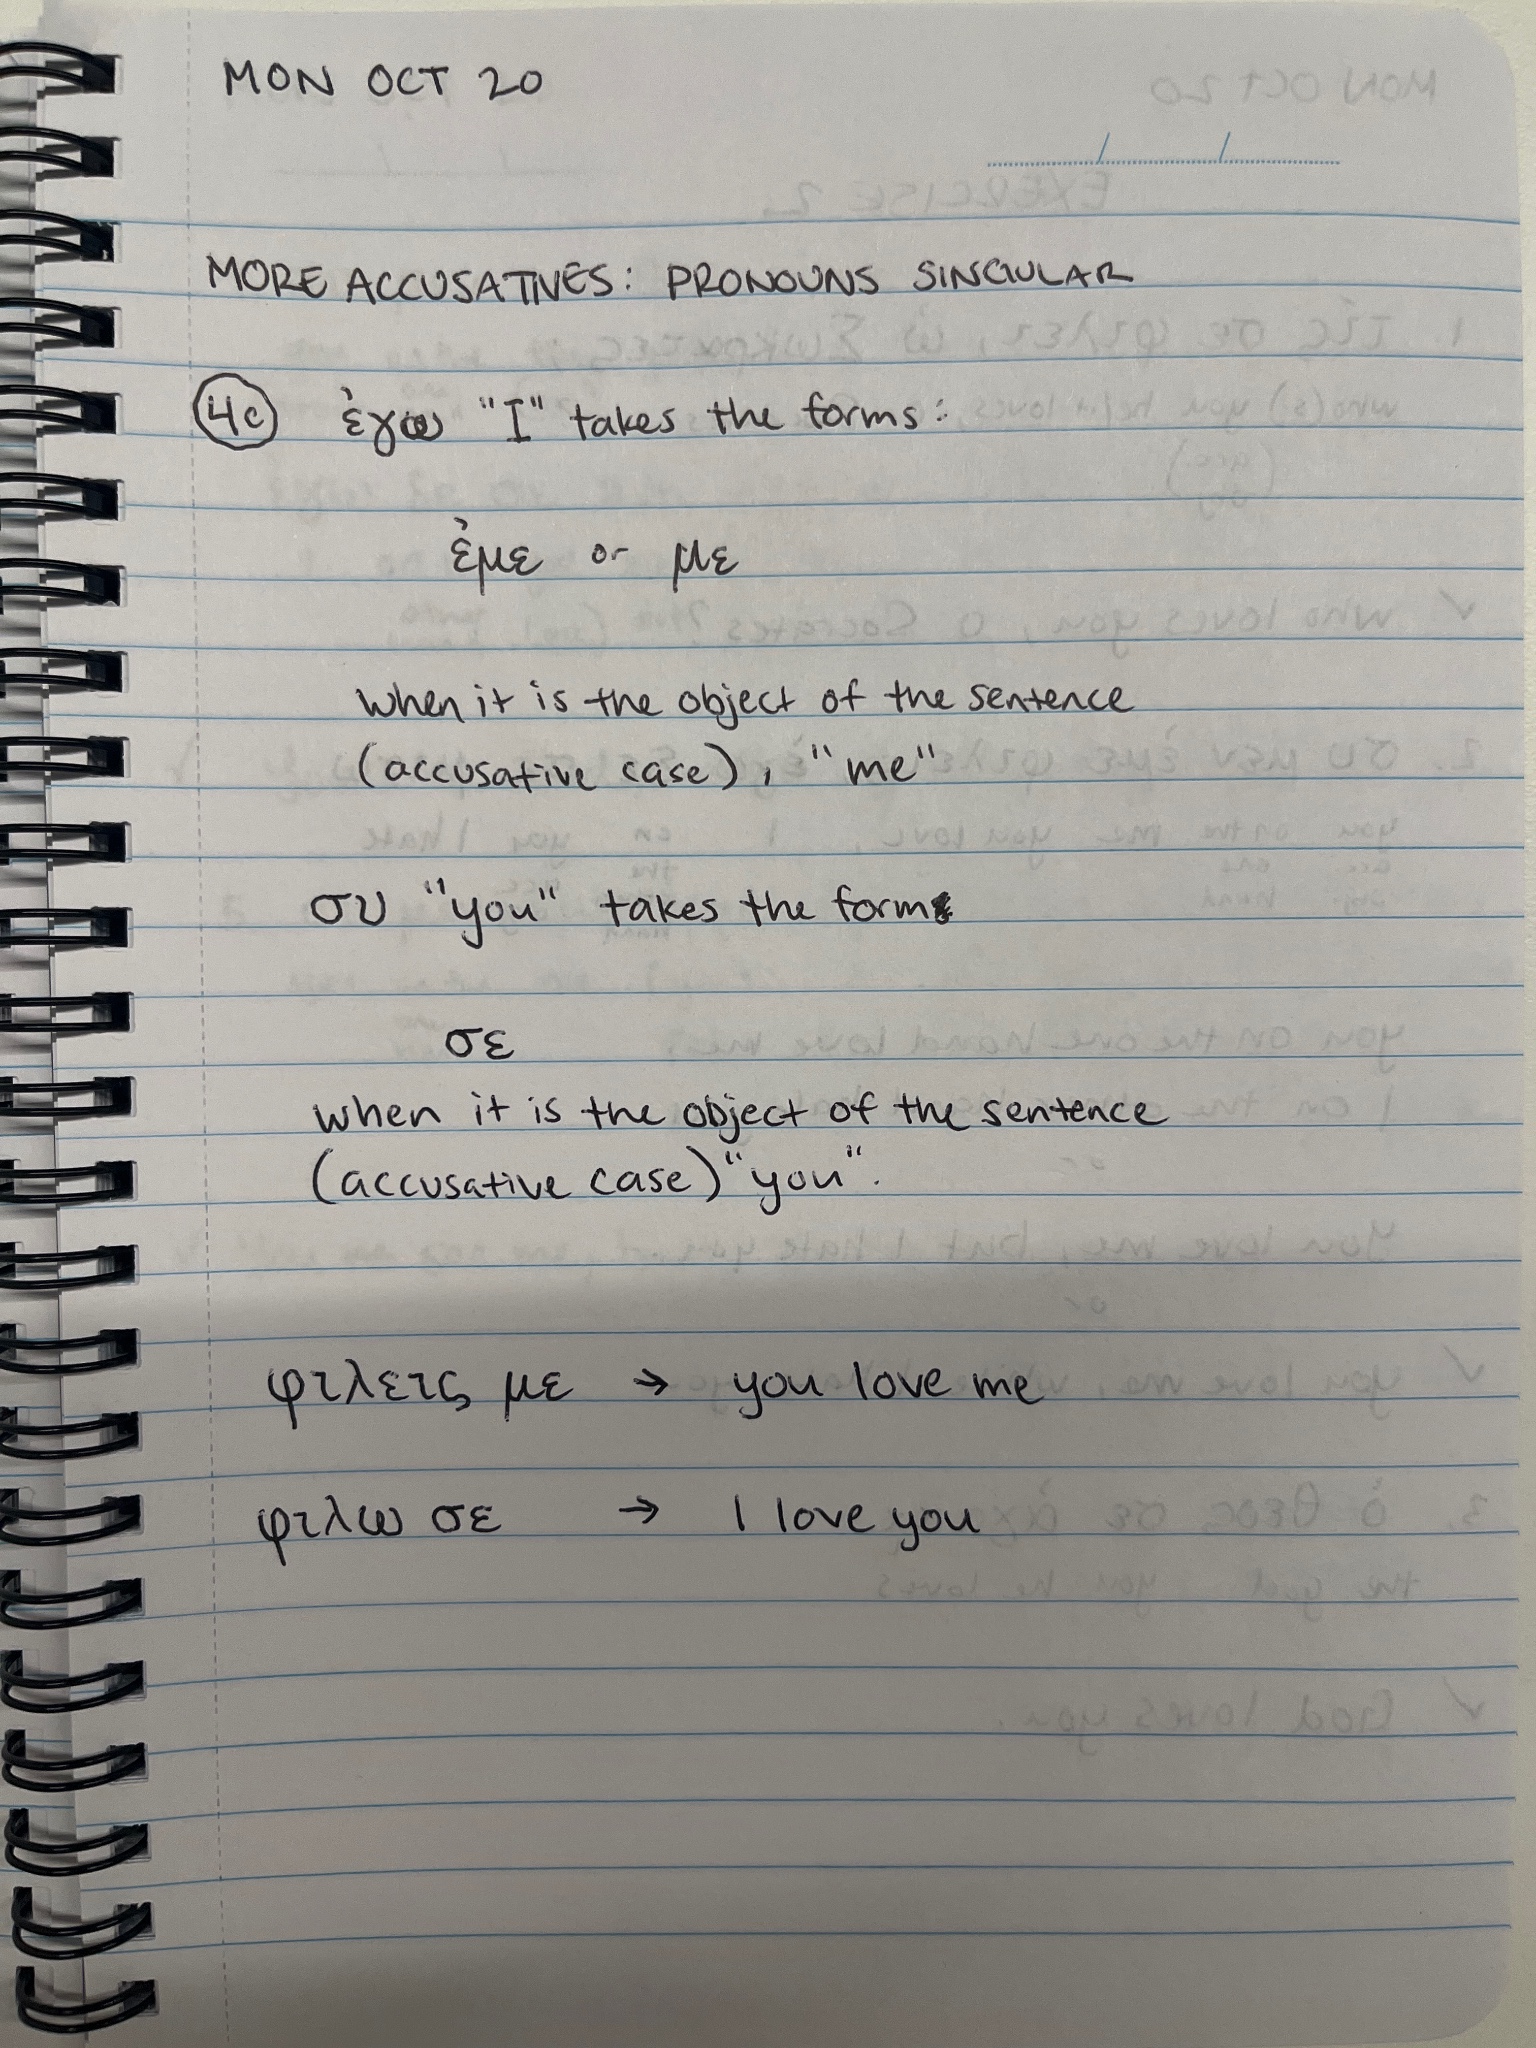 MON OCT 20
MORE ACCUSATIVES: PRONOUNS SINGULAR
4c ἐγω "I" takes the forms:
ἐμε or με
when it is the object of the sentence
(accusative case), "me"
συ "you" takes the form
σε
when it is the object of the sentence
(accusative case) "you".
φιλεις με → you love me
φιλω σε → I love you